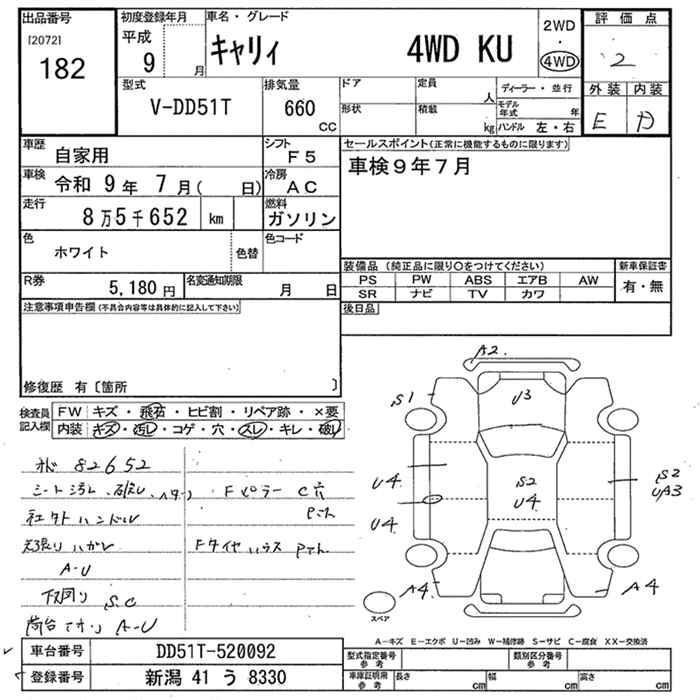 出品番号
[2072]
182
初度登録年月
平成
9
月
車名・グレード
キャリィ 4WD KU
2WD
・
4WD
評価点
2
外装 内装
E D
型式
V-DD51T
排気量
660
CC
ドア
形状
定員
人
積載
kg
ディーラー・並行
モデル年式
年
ハンドル 左・右
車歴
自家用
シフト
F5
車検
令和 9年 7月( 日)
冷房
AC
走行
8万5千652 km
燃料
ガソリン
色
ホワイト
色替
色コード
R券
5,180円
名変通知期限
月 日
注意事項申告欄(不具合内容等は具体的に記入して下さい)
修復歴 有〔箇所 〕
セールスポイント(正常に機能するものに限ります)
車検9年7月
装備品(純正品に限り〇をつけてください)
PS PW ABS エアB AW
SR ナビ TV カワ
新車保証書
有・無
後日品
検査員記入欄
FW キズ・飛石・ヒビ割・リペア跡・×要
内装 キズ・汚レ・コゲ・穴・スレ・キレ・破レ
82652
シート汚れ
Fピラー C穴
Pコト
社外ハンドル
天張りハガレ
Fタイヤハウス Pコト
A-U
下回り S.C
荷台 A-U
A2
S1
U3
U4
S2
U4
S2
UA3
U4
A4
A4
スペア
A-キズ E-エクボ U-凹み W-補修跡 S-サビ C-腐食 XX-交換済
車台番号
DD51T-520092
登録番号
新潟 41 う 8330
型式指定番号
参考
類別区分番号
参考
車庫証明用
参考
長さ
cm
幅
cm
高さ
cm